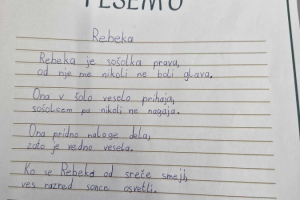 PESEM O
Rebeka
Rebeka je sošolka prava,
od nje me nikoli ne boli glava.
Ona v šolo veselo prihaja,
sošolcem pa nikoli ne nagaja.
Ona pridno naloge dela,
zato je vedno vesela.
Ko se Rebeka od sreče smeji,
ves razred sonce osvetli.